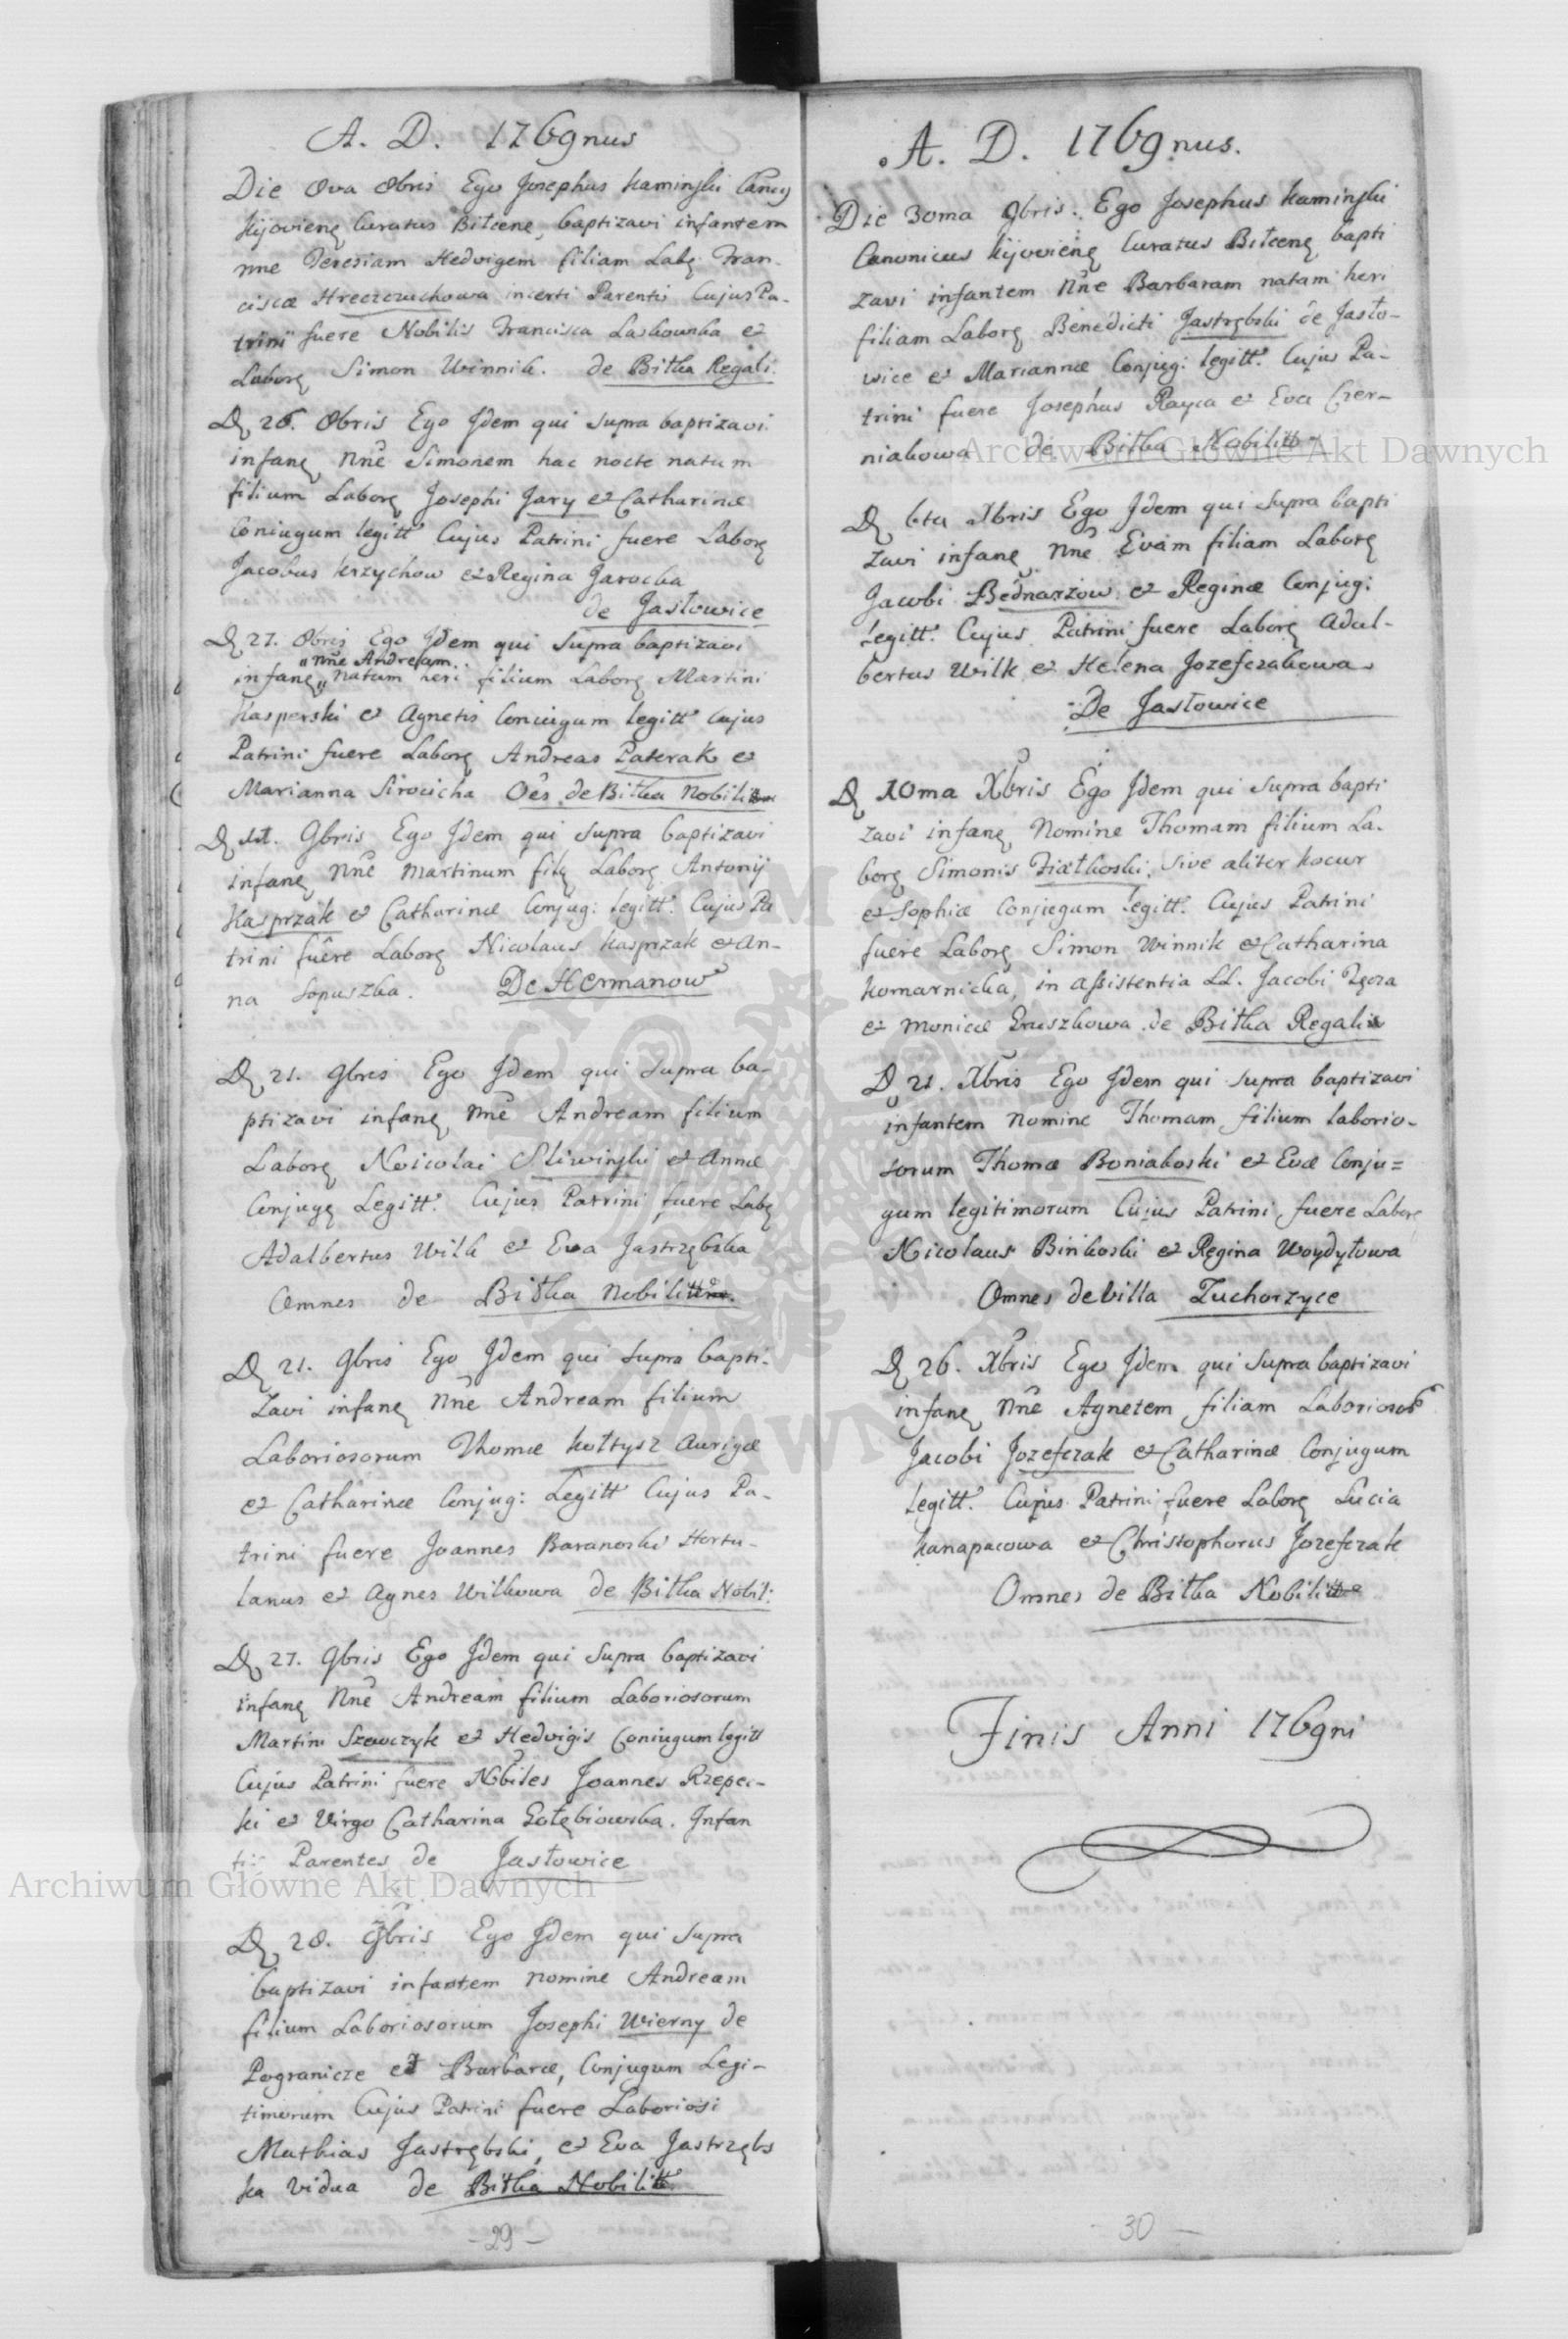 A. D. 1769nus
Die 8va 8bris Ego Josephus Kaminski Can
Kijovienę Curatus Biłcenę, baptizavi infantem
nne Teresiam Hedvigem filiam Labę Fran-
ciscæ Hreczuchowa incerti Parentis Cujus Pa-
trini fuere Nobilis Francisca Laskownka et
Laborę Simon Winnik. de Biłka Regali.
D 26. 8bris Ego Jdem qui supra baptizavi
infanę Nne Simonem hac nocte natum
filium Laborę Josephi Jary et Catharinæ
Coniugum legitt Cujus Patrini fuere Laborę
Jacobus Krzychow et Regina Jarocka
de Jastowice
D 27. 8bris Ego Jdem qui supra baptizavi
"nne Andream
infanę" natum heri filium Laborę Martini
Kasperski et Agnetis Coniugum legitt cujus
Patrini fuere Laborę Andreas Paterak et
Marianna Sirocicha Oes de Biłka Nobili
D 9bris Ego Jdem qui supra baptizavi
infanę Nne Martinum filę Laborę Antonij
Kasprzak et Catharinæ Conjug: legitt. Cujus Pa
trini fuere Laborę Nicolaus Kasprzak et An-
na Sopuszka. De Hermanow
D 21. 9bris Ego Jdem qui supra ba-
ptizavi infanę Nne Andream filium
Laborę Nicolai Sliwinski et Annæ
Conjugę Legitt. Cujus Patrini fuere Labę
Adalbertus Wilk et Eva Jastrzębska
Omnes de Biłka Nobili
D 21. 9bris Ego Jdem qui supra bapti-
zavi infanę Nne Andream filium
Laboriosorum Thomæ Kołtysz Aurigæ
et Catharinæ Conjug: Legitt Cujus Pa-
trini fuere Joannes Baranoski Hortu-
lanus et Agnes Wilkowa de Biłka Nobil:
D 27. 9bris Ego Jdem qui supra baptizavi
infanę Nne Andream filium Laboriosorum
Martini Szewczyk et Hedvigis Coniugum legitt
Cujus Patrini fuere Nobiles Joannes Rzepec-
ki et Virgo Catharina Gołębiowska. Infan
tis Parentes de Jastowice
D 28. 9bris Ego Jdem qui supra
baptizavi infantem nomine Andream
filium Laboriosorum Josephi Wierny de
Pogranicze et Barbaræ, Conjugum Legi-
timorum Cujus Patrini fuere Laboriosi
Mathias Jastrębski, et Eva Jastrzębs
ka vidua de Biłka Nobilitt
- 29 -
A. D. 1769nus.
Die 30ma 9bris. Ego Josephus Kaminski
Canonicus Kijovienę Curatus Biłcenę bapti
zavi infantem Nne Barbaram natam heri
filiam Laborę Benedicti Jastrębski de Jasto-
wice et Mariannæ Conjug: legitt. Cujus Pa-
trini fuere Josephus Rayca et Eva Czer-
niakowa de Biłka Nobilitt
D 6ta Xbris Ego Jdem qui supra bapti
zavi infanę Nne Evam filiam Laborę
Jacobi Bednarzow et Reginæ Conjug:
Legitt. Cujus Patrini fuere Laborę Adal-
bertus Wilk et Helena Jozefczakowa
De Jastowice
D 10ma Xbris Ego Jdem qui supra bapti
zavi infanę Nomine Thomam filium La-
borę Simonis Fiałkoski, sive aliter Kocur
et Sophiæ Conjugum legitt. Cujus Patrini
fuere Laborę Simon Winnik et Catharina
Komarnicka, in assistentia LL. Jacobi Zęcza
et Monicæ Gruszkowa de Biłka Regali
D 21. Xbris Ego Jdem qui supra baptizavi
infantem Nomine Thomam filium laborio-
sorum Thomæ Boniakoski et Evæ Conju=
gum legitimorum Cujus Patrini fuere Laborę
Nicolaus Bińkoski et Regina Woydyłowa
Omnes de villa Zuchorzyce
D 26. Xbris Ego Jdem qui supra baptizavi
infanę Nne Agnetem filiam Laborioso
Jacobi Jozefczak et Catharinæ Conjugum
legitt. Cujus Patrini fuere Laborę Lucia
Kanapacowa et Christophorus Jozefczak
Omnes de Biłka Nobili
Finis Anni 1769ni
30 -
Archiwum Główne Akt Dawnych
Archiwum Główne Akt Dawnych